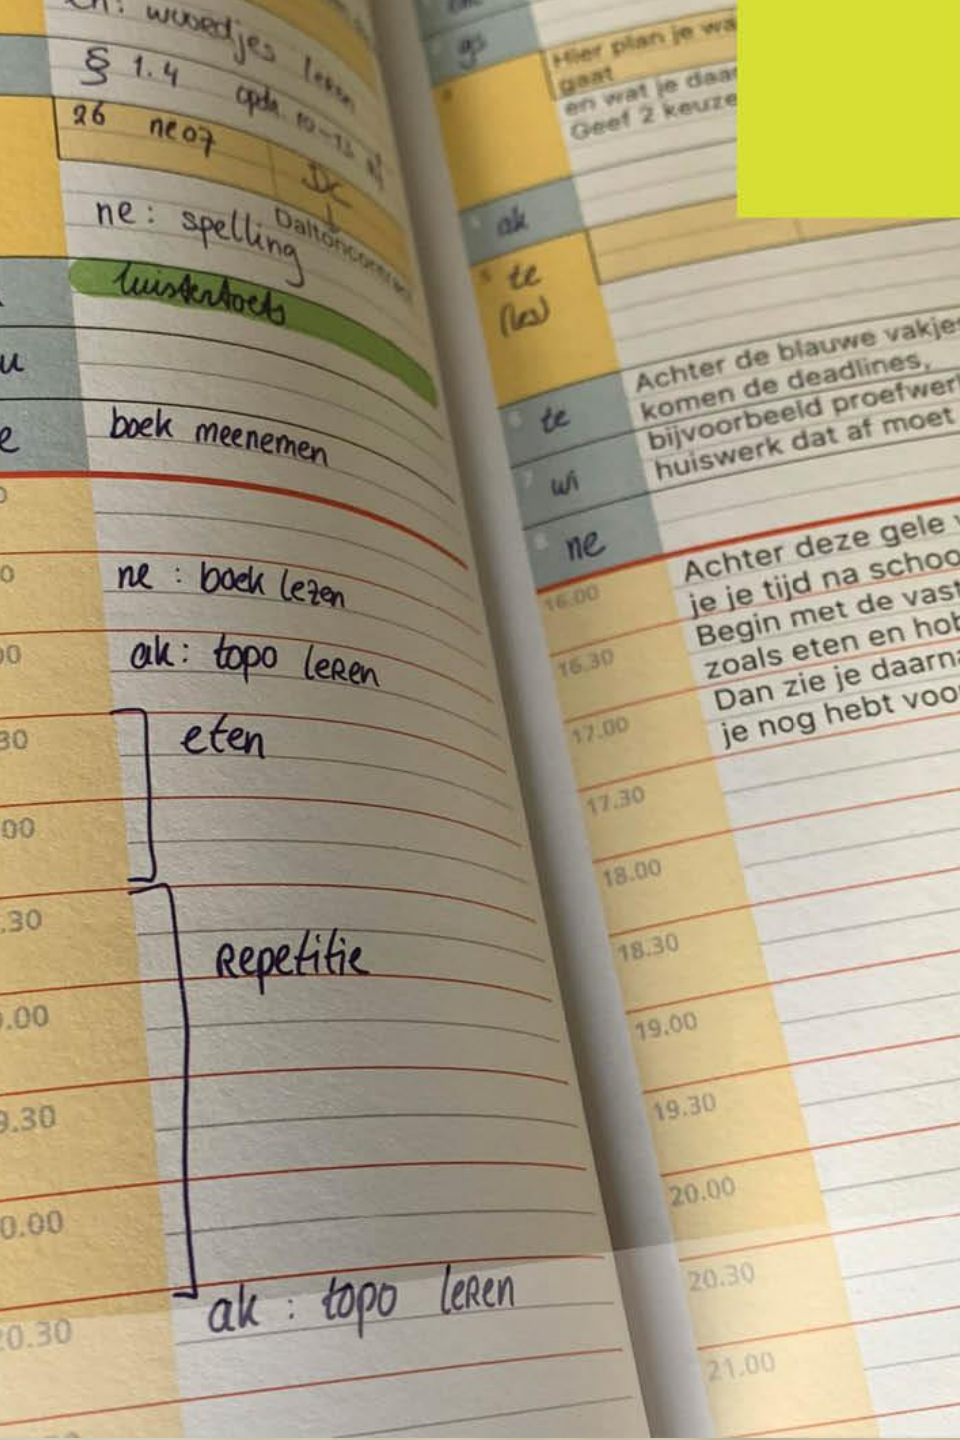 en: woordjes leren
§ 1.4 opdr. 10-13
26 ne07 DC
↓
Daltoncontract
ne: spelling
luistertoets
u
e boek meenemen
0
0 ne: boek lezen
00 ak: topo leren
30 eten
00
.30
Repetitie
.00
9.30
0.00
ak: topo leren
20.30
gs
Hier plan je wa
gaat
en wat je daar
Geef 2 keuze
ak
te
(les)
Achter de blauwe vakjes
te komen de deadlines,
bijvoorbeeld proefwer
wi huiswerk dat af moet
ne
Achter deze gele v
16.00 je je tijd na schoo
Begin met de vast
16.30 zoals eten en hob
Dan zie je daarna
17.00 je nog hebt voor
17.30
18.00
18.30
19.00
19.30
20.00
20.30
21.00